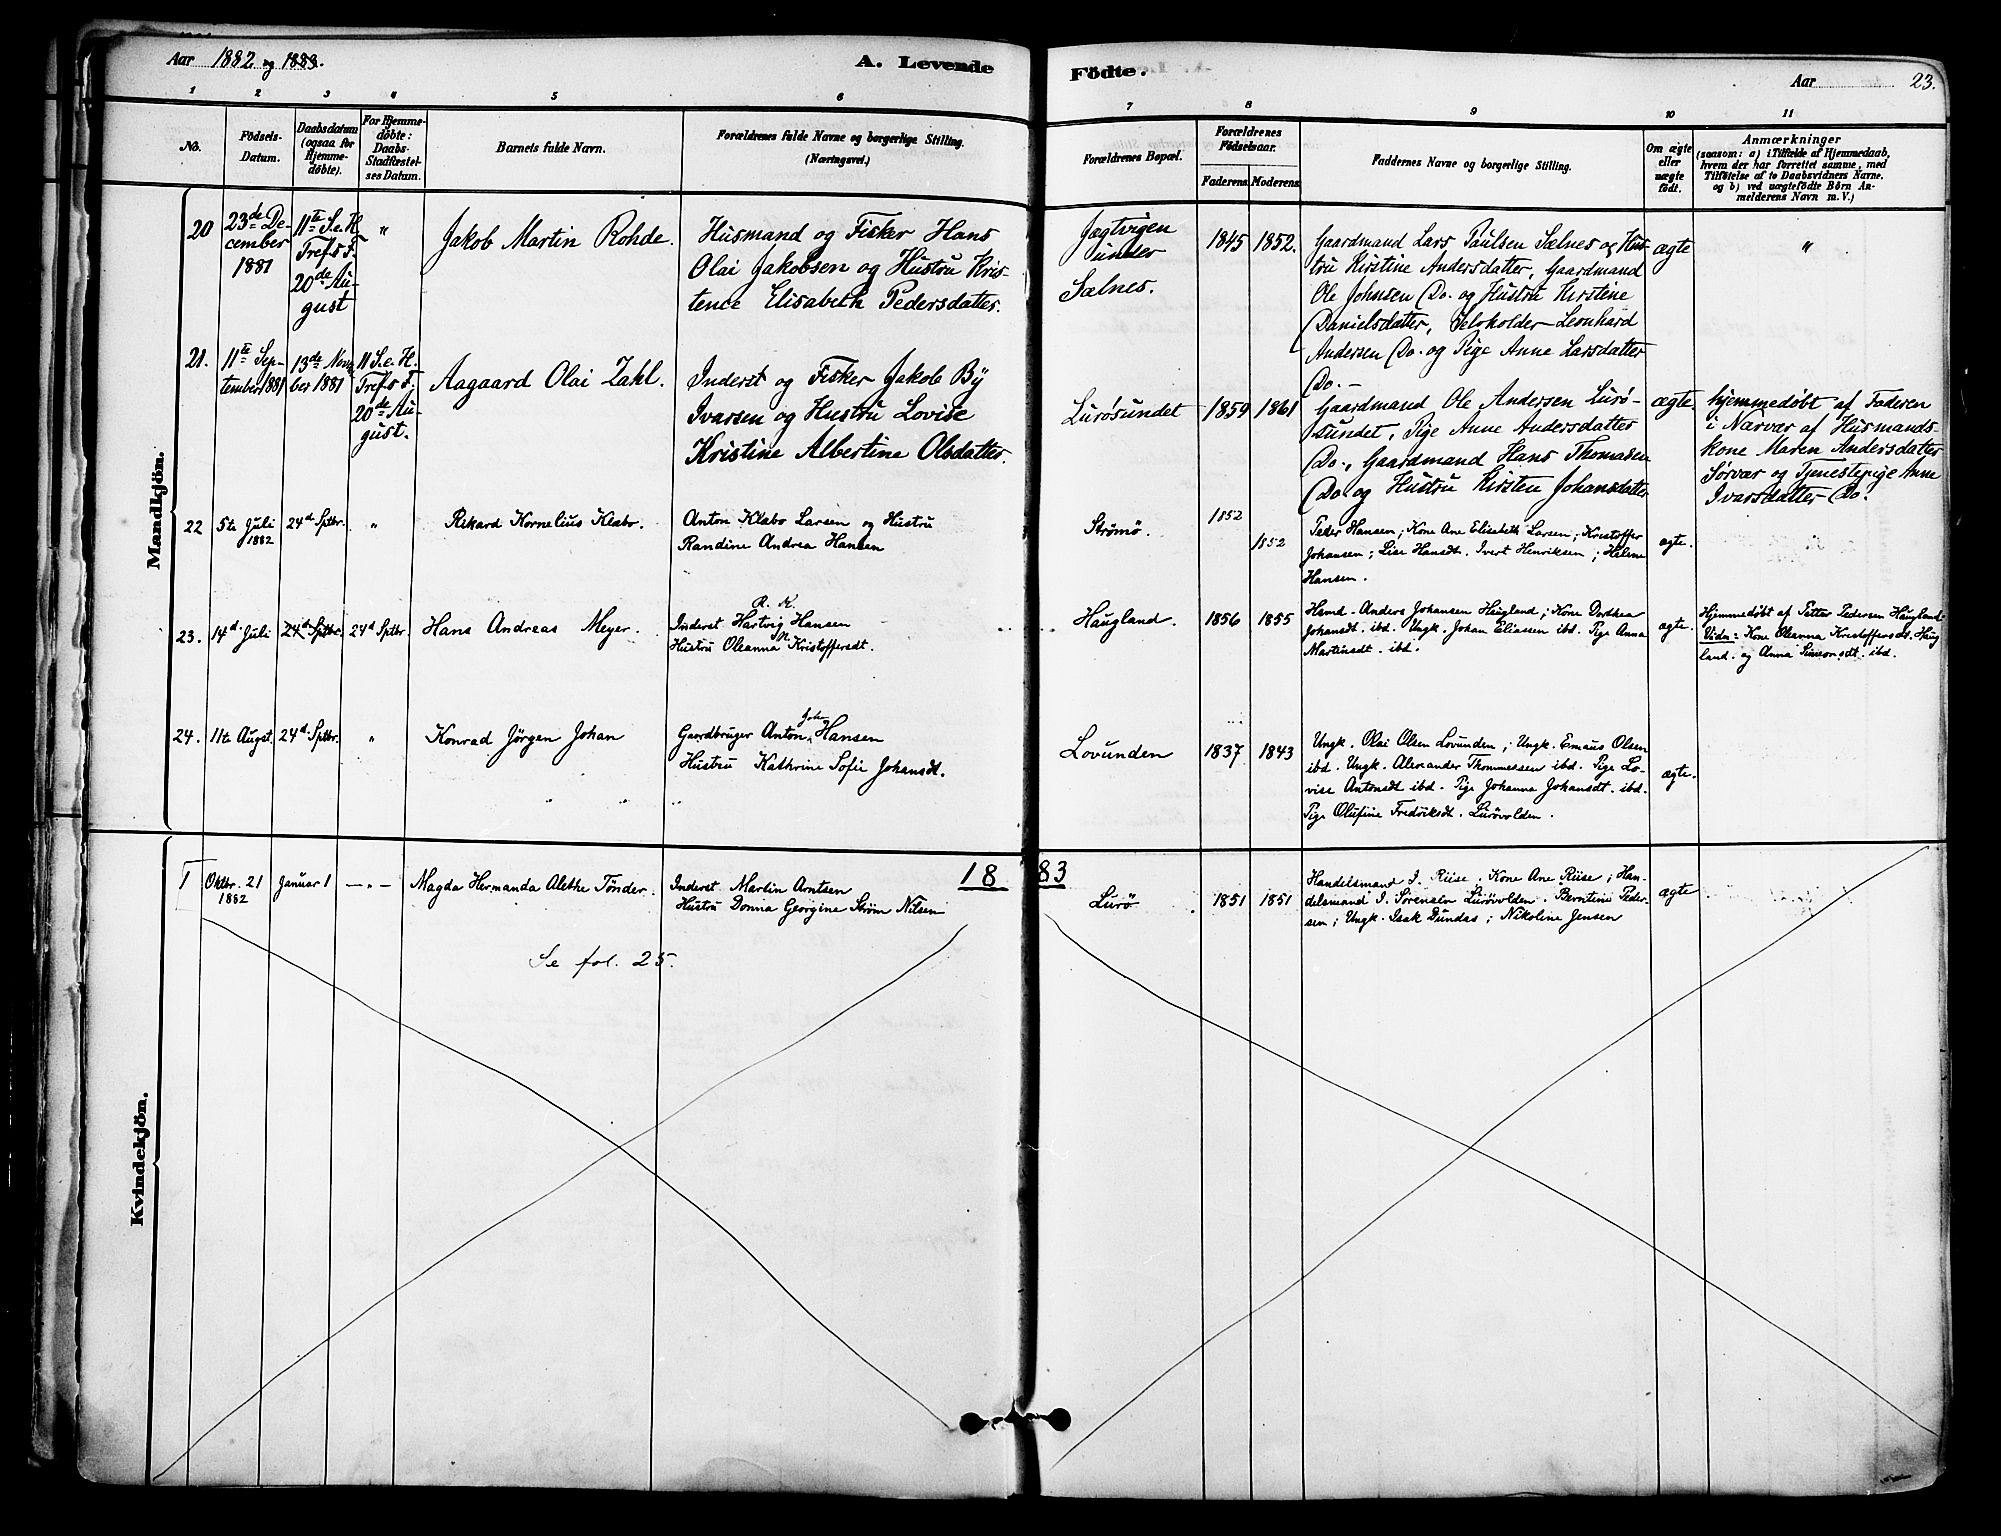 Aar 1882 og 1883.
A. Levende Födte.
Aar 23.
1 2 3 4 5 6 7 8 9 10 11
No.
Födsels-
Datum.
Daabsdatum
(ogsaa for
Hjemme-
døbte).
For Hjemme-
døbte:
Daabs-
Stadfæstel-
ses Datum.
Barnets fulde Navn.
Forældrenes fulde Navne og borgerlige Stilling.
(Næringsvei.)
Forældrenes Bopæl.
Forældrenes
Födselsaar.
Faderens.
Moderens.
Faddernes Navne og borgerlige Stilling.
Om ægte
eller
uægte
født.
Anmærkninger
(saasom: a) i Tilfælde af Hjemmedaab,
hvem der har forrettet samme, med
Tilföielse af to Daabsvidners Navne.
og b) ved uægtefödte Börn An-
melderens Navn m. V.)
Mandkjön.
20
23de De-
cember
1881
11te S. e. H.
Tref.s F.
20de Au-
gust
"
Jakob Martin Rohde.
Husmand og Fisker Hans
Olai Jakobsen og Hustru Kris-
tence Elisabeth Pedersdatter.
Jægtvigen
under
Sælnes.
1845
1852.
Gaardmand Lars Paulsen Sælnes og Hus-
tru Kirstine Andersdatter, Gaardmand
Ole Johnsen Do. og Hustru Kirstine
Danielsdatter, Selvholder Leonhard
Andersen Do. og Pige Anne Larsdatter
Do. –
ægte
"
21.
11te Sep-
tember 1881
13de Novem-
ber 1881
11 S. e. H.
Tref.s F.
20de Au-
gust.
Aagaard Olai Zahl.
Inderst og Fisker Jakob By
Ivarsen og Hustru Lovise
Kristine Albertine Olsdatter.
Lurøsundet
1859
1861
Gaardmand Ole Andersen Lurø-
sundet, Pige Anne Andersdatter
Do., Gaardmand Hans Thomasen
Do. og Hustru Kirsten Johansdatter
ægte.
hjemmedøbt af Faderen
i Nærvær af Husmands-
kone Maren Andersdatter
Sørvær og Tjenestepige Anne
Ivarsdatter Do.
22
5te Juli
1882
24d Sptbr.
"
Rikard Kornelius Klabo.
Anton Klabo Larsen og Hustru
Randine Andrea Hansen
Strømø.
1852
1852
Peder Hansen; Kone Ane Elisabeth Larsen; Kristoffer
Johansen; Lise Hansdt. Ivert Henriksen; Helene
Hansen.
ægte.
23.
14d Juli
24d Sptbr.
24d Sptbr.
Hans Andreas Meyer.
R. K.
Inderst Hartvig Hansen
Hustru Oleanna Kristoffersdt.
Haugland.
1856
1855
Husmd. Anders Johansen Haugland; Kone Dorthea
Johansdt. ibd. Ungk. Johan Eliassen ibd. Pige Anna
Martinsdt. ibd.
ægte.
Hjemmedøbt af Petter Pedersen Haugland
Vidn: Kone Oleanna Kristoffersdt. Haug-
land. og Anna Simonsdt. ibd.
24.
11te Augst.
24d Sptbr.
"
Konrad Jörgen Johan
Gaardbruger Anton Johan Hansen
Hustru Kathrine Sofie Johansdt.
Lovunden
1837
1843
Ungk. Olai Olsen Lovunden; Ungk. Emaus Olsen
ibd. Ungk. Alexander Thommessen ibd. Pige Lo-
vise Antonsdt ibd. Pige Johanna Johansdt. ibd.
Pige Olufine Fredriksdt. Lurövolden.
ægte.
Kvindekjön.
1883
1
Oktbr. 21
1882
Januar 1
– " –
Magda Hermanda Alethe Tönder.
Inderst Martin Arntsen
Hustru Donna Georgine Ström Nilsen
Lurö
1851
1851
Handelsmand I. Riise. Kone Ane Riise; Han-
delsmand I. Sörensen Lurövolden. Berntine Peder-
sen; Ungk. Isak Dundas; Nikoline Jensen
ægte
Se fol. 25.